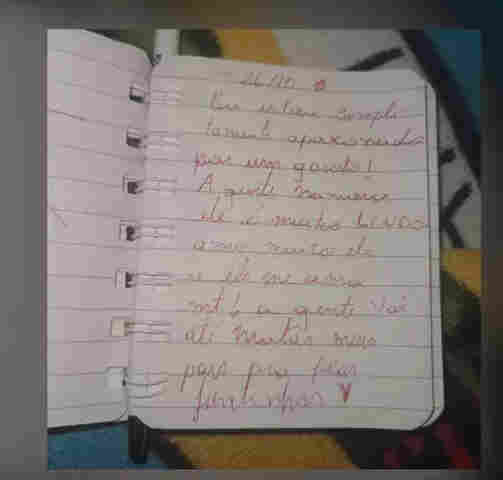 16/10
Eu estou comple
tamente apaixonada
por um garoto!
A gente namora
ele é muito LINDO
amo muito ele
e ele me ama
mt! a gente vai
até matar meus
pais pra ficar
juntinhos